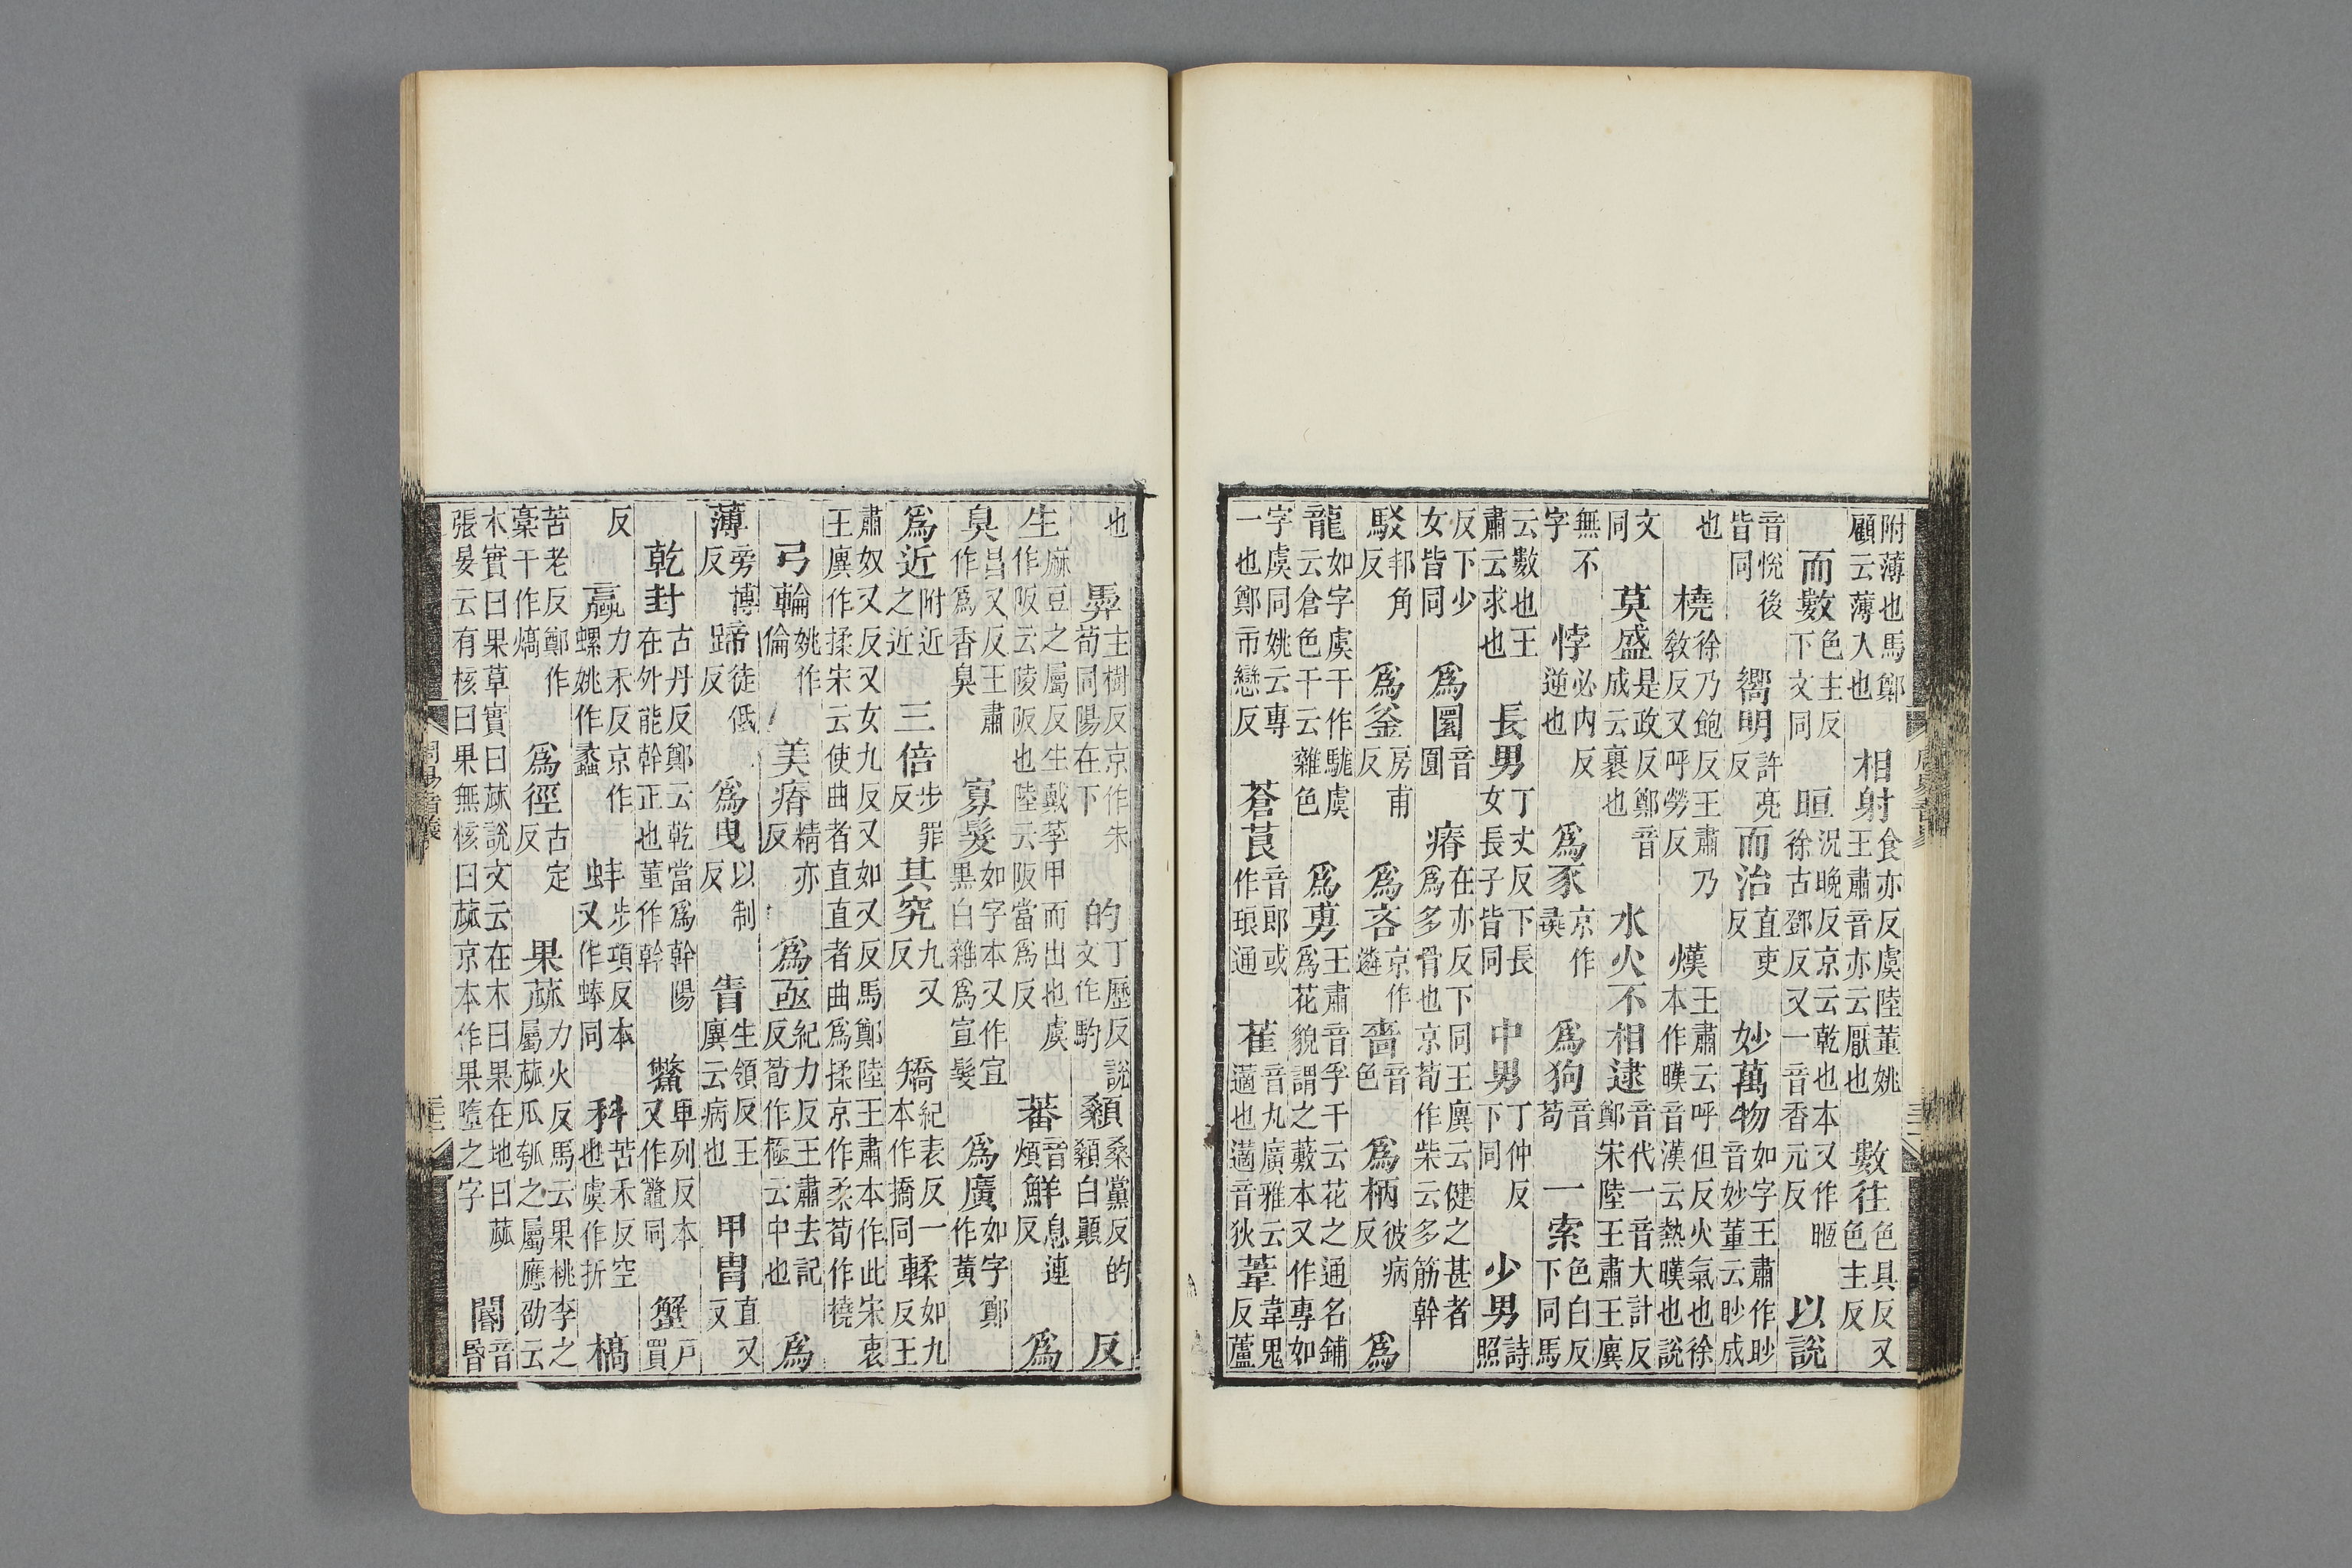 附薄也馬鄭顧云薄入也　相射食亦反虞陸董姚王肅音亦云厭也　數往色具反又色主反
而數色主反下文同　晅況晚反京云乾也本又作暅徐古鄧反又一音香元反　以說
音悅後皆同　嚮明許亮反　而治直吏反　妙萬物如字王肅作眇音妙董云眇成
也　橈徐乃飽反王肅乃教反又呼勞反　熯王肅云呼但反火氣也徐本作暵音漢云熱暵也說
文同　莫盛是政反鄭音成云裹也　水火不相逮音代一音大計反鄭宋陸王肅王廙
無不字　悖必內反逆也　爲豕京作彘　爲狗音苟　一索色白反下同馬
云數也王肅云求也　長男丁丈反下長女長子皆同　中男丁仲反下同　少男詩照
反下少女皆同　爲圜音圓　瘠在亦反下同王廙云健之甚者爲多骨也京荀作柴云多筋幹
駁邦角反　爲釜房甫反　爲吝京作遴　嗇音色　爲柄彼病反　爲
龍如字虞干作駹虞云倉色干云雜色　爲旉王肅音孚干云花之通名鋪爲花貌謂之藪本又作專如
字虞同姚云專一也鄭市戀反　蒼筤音郎或作琅通　萑音丸廣雅云藡也藡音狄　葦韋鬼反蘆
也　馵主樹反京作朱荀同陽在下　的丁歷反說文作馰　顙桑黨反的顙白顛　反
生麻豆之屬反生戴莩甲而出也虞作阪云陵阪也陸云阪當爲反　蕃音煩　鮮息連反　爲
臭昌又反王肅作爲香臭　寡髮如字本又作宣黑白雜爲宣髮　爲廣如字鄭作黃
爲近附近之近　三倍步罪反　其究九又反　矯紀表反一本作撟同　輮如九反王
肅奴又反又女九反又如又反馬鄭陸王肅本作此宋衷王廙作揉宋云使曲者直直者曲爲揉京作柔荀作橈
弓輪姚作倫　美瘠精亦反　爲亟紀力反王肅去記反荀作極云中也　爲
薄旁博反　蹄徒低反　爲曳以制反　眚生領反王廙云病也　甲冑直又反
乾卦古丹反鄭云乾當爲幹陽在外能幹正也董作幹　鼈卑列反本又作鱉同　蟹戶買
反　蠃力禾反京作螺姚作蠡　蚌步項反本又作蜯同　科苦禾反空也虞作折　槁
苦老反鄭作槀干作熇　爲徑古定反　果蓏力火反馬云果桃李之屬蓏瓜瓠之屬應劭云
木實曰果草實曰蓏說文云在木曰果在地曰蓏張晏云有核曰果無核曰蓏京本作果墮之字　閽音昬
周易音義